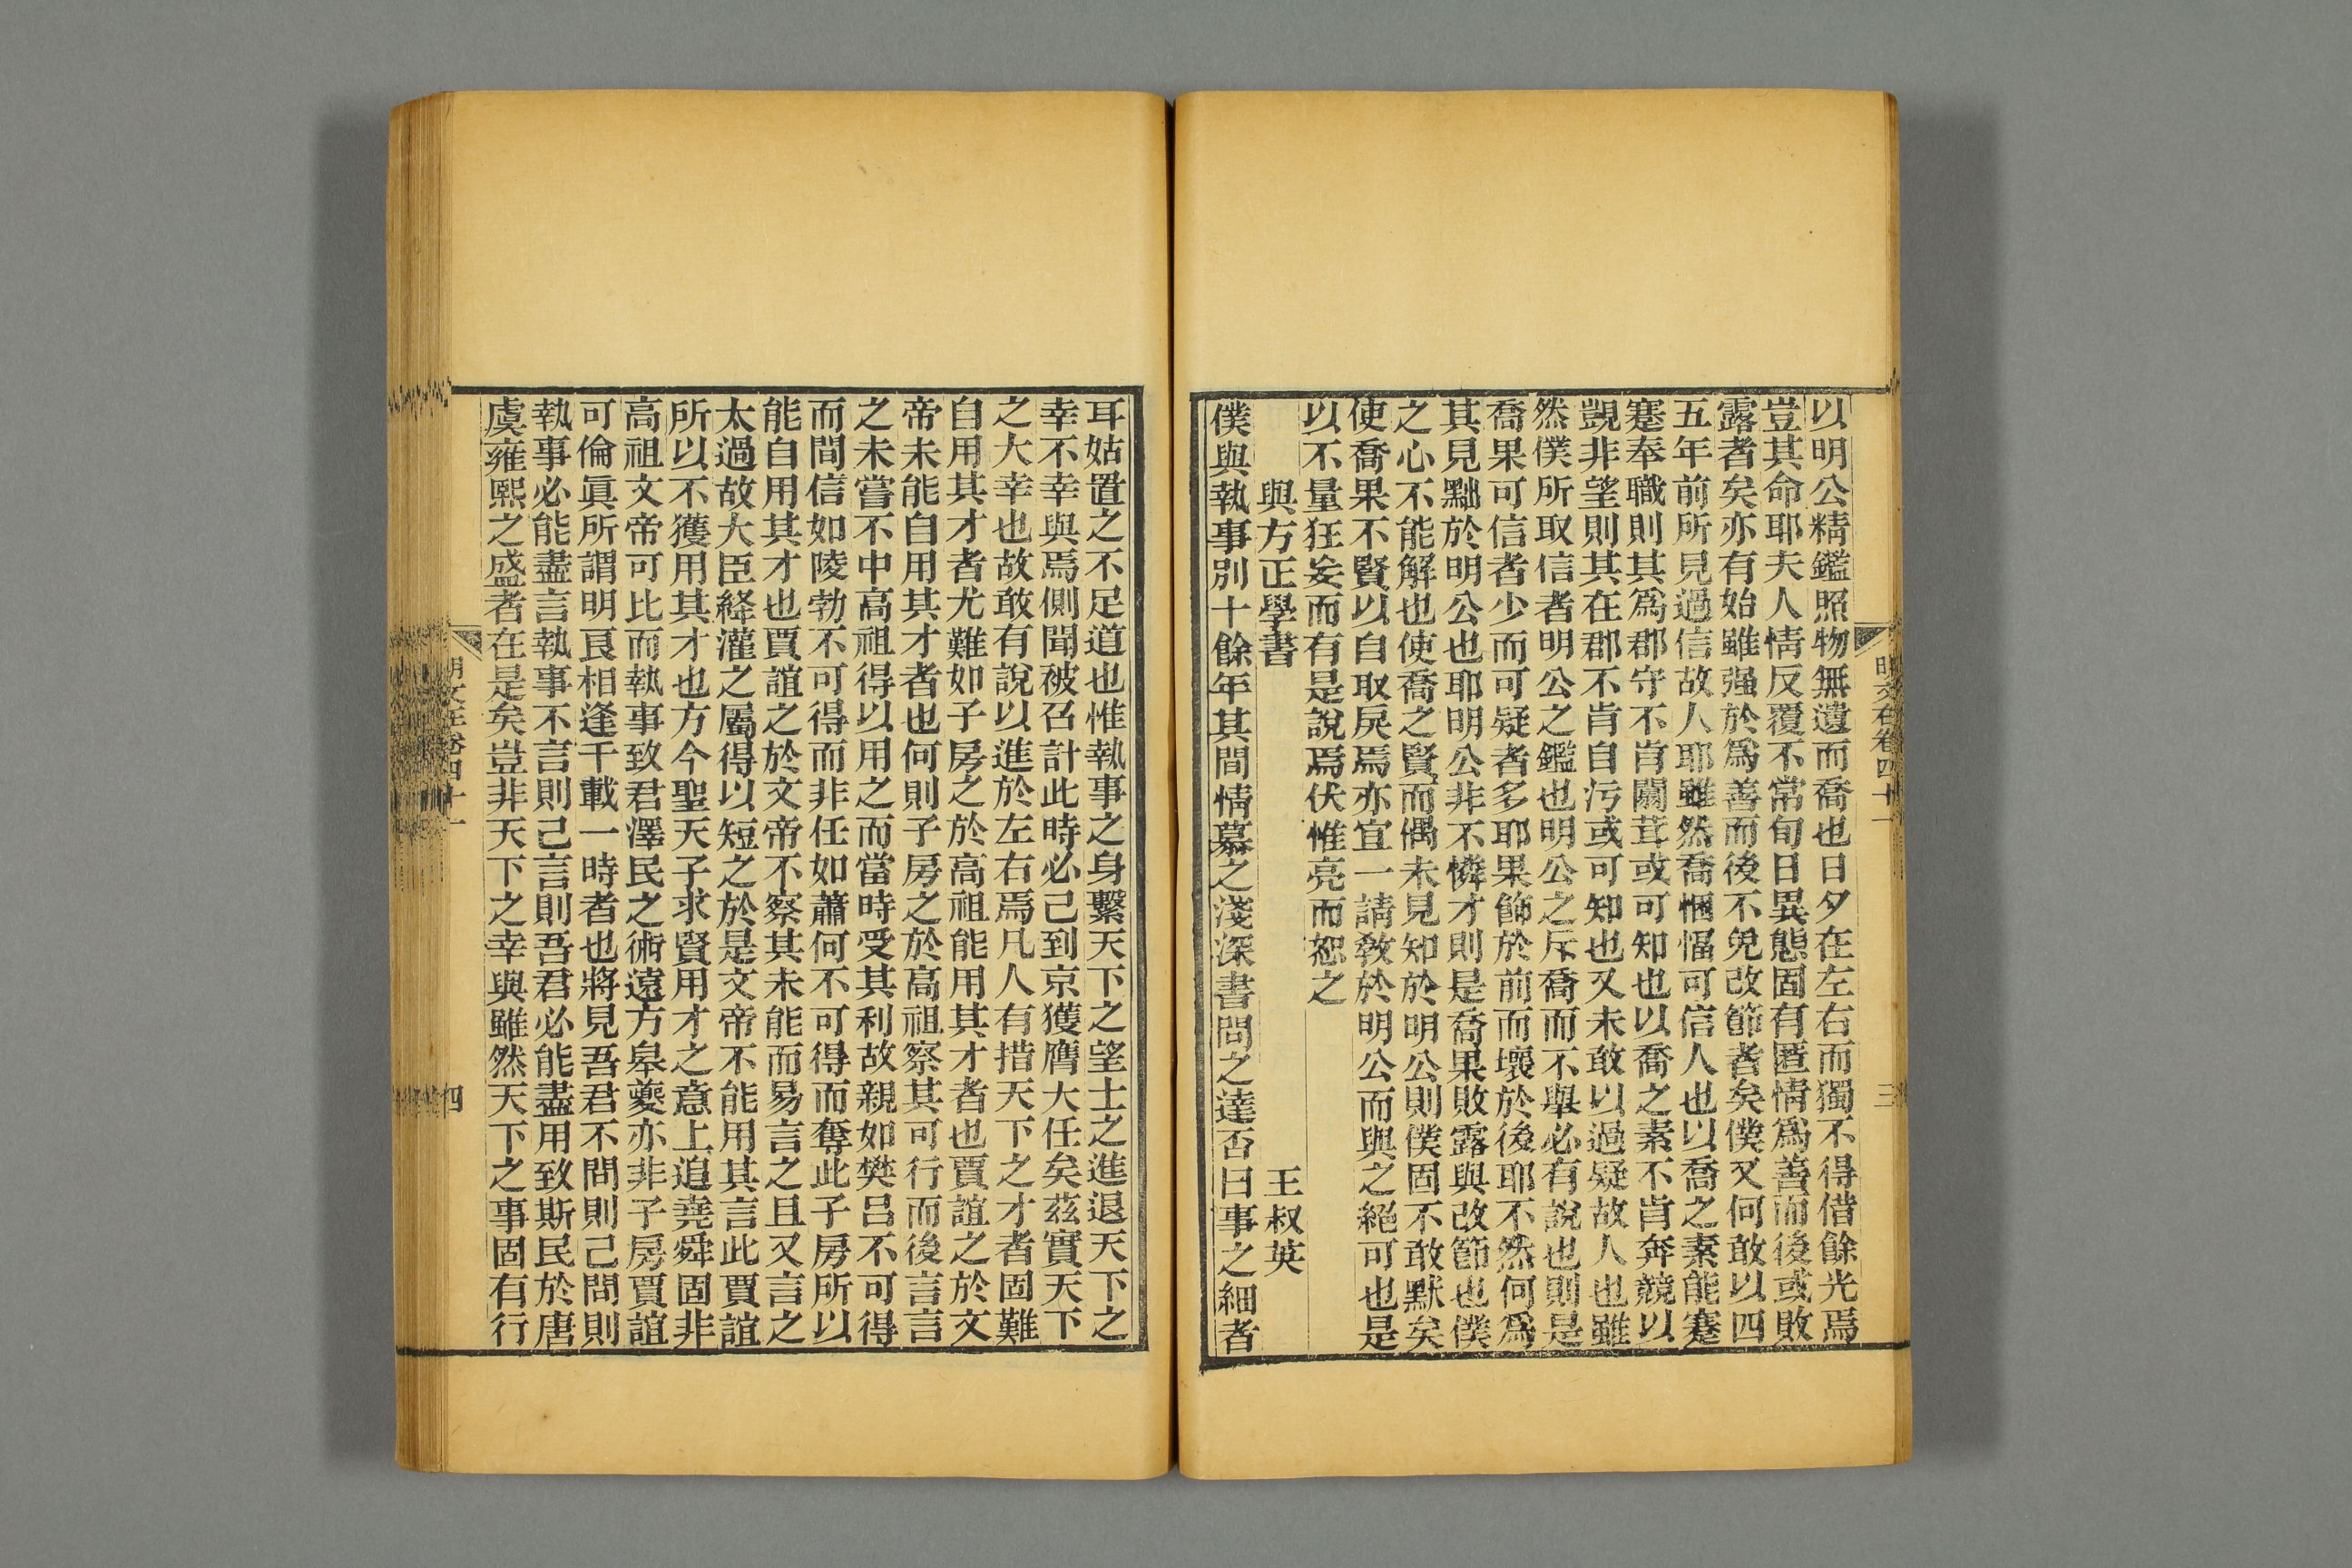 以明公精鑑照物無遺而喬也日夕在左右而獨不得借餘光焉
豈其命耶夫人情反覆不常旬日異態固有匿情爲善而後或敗
露者矣亦有始雖强於爲善而後不免改節者矣僕又何敢以四
五年前所見過信故人耶雖然喬悃愊可信人也以喬之素能蹇
蹇奉職則其爲郡守不肯闒茸或可知也以喬之素不肯奔競以
覬非望則其在郡不肯自污或可知也又未敢以過疑故人也雖
然僕所取信者明公之鑑也明公之斥喬而不舉必有說也則是
喬果可信者少而可疑者多耶果飾於前而壞於後耶不然何爲
其見黜於明公也耶明公非不憐才則是喬果敗露與改節也僕
之心不能解也使喬之賢而偶未見知於明公則僕固不敢默矣
使喬果不賢以自取戾焉亦宜一請敎於明公而與之絕可也是
以不量狂妄而有是說焉伏惟亮而恕之
與方正學書 王叔英
僕與執事別十餘年其間情慕之淺深書問之達否日事之細者
明文在卷四十一
三
耳姑置之不足道也惟執事之身繫天下之望士之進退天下之
幸不幸與焉側聞被召計此時必已到京獲膺大任矣茲實天下
之大幸也故敢有說以進於左右焉凡人有措天下之才者固難
自用其才者尤難如子房之於高祖能用其才者也賈誼之於文
帝未能自用其才者也何則子房之於高祖察其可行而後言言
之未嘗不中高祖得以用之而當時受其利故親如樊呂不可得
而間信如陵勃不可得而非任如蕭何不可得而奪此子房所以
能自用其才也賈誼之於文帝不察其未能而易言之且又言之
太過故大臣絳灌之屬得以短之於是文帝不能用其言此賈誼
所以不獲用其才也方今聖天子求賢用才之意上追堯舜固非
高祖文帝可比而執事致君澤民之術遠方皋夔亦非子房賈誼
可倫眞所謂明良相逢千載一時者也將見吾君不問則已問則
執事必能盡言執事不言則已言則吾君必能盡用致斯民於唐
虞雍熙之盛者在是矣豈非天下之幸與雖然天下之事固有行
明文在卷四十一
四